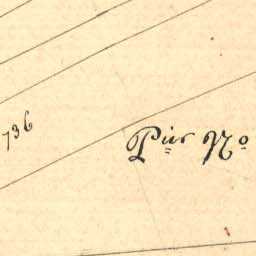 736
Pier No